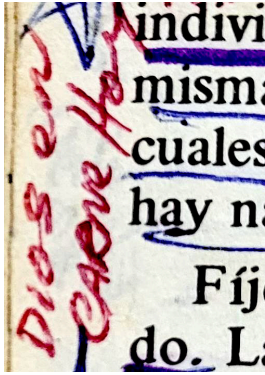 Dios en
CARNE Hoy
indivi
misma
cuales
hay na
Fíje
do. La